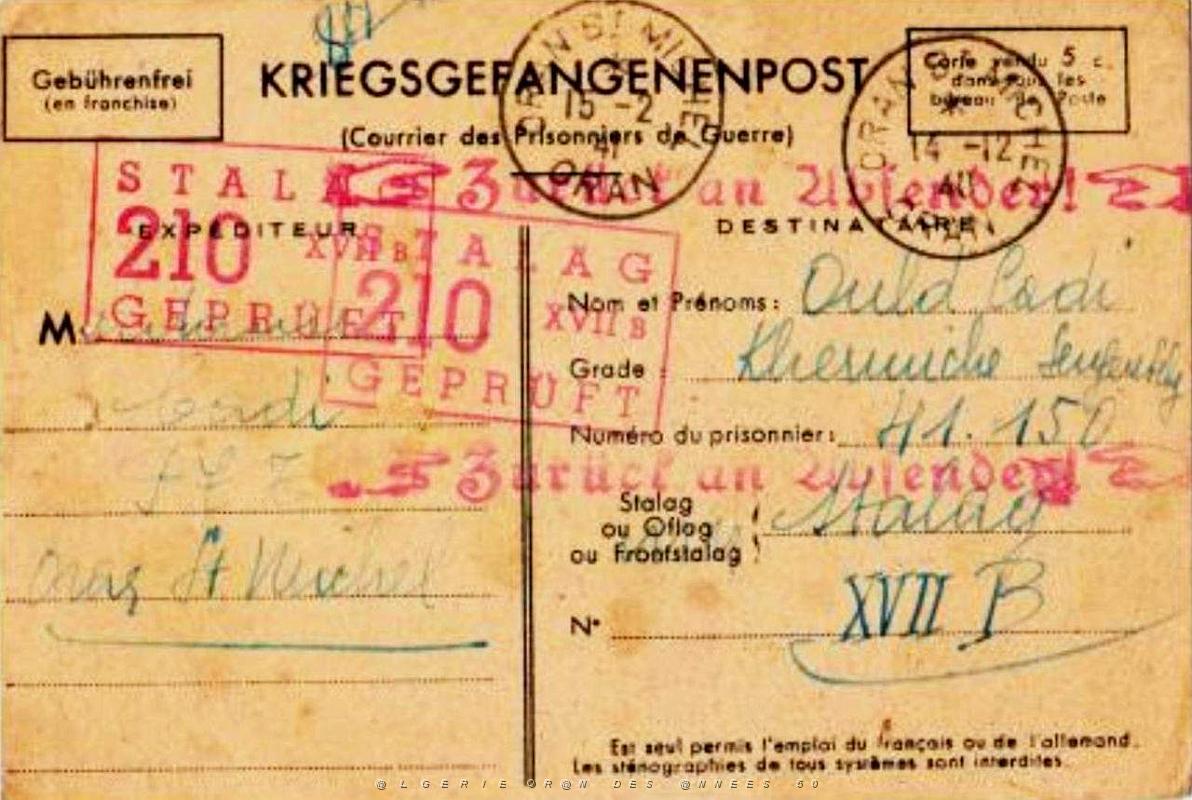 Gebührenfrei
(en franchise)
KRIEGSGEFANGENENPOST
(Courrier des Prisonniers de Guerre)
Carte vendu 5 c.
dans tous les
bureau de Poste
ORAN ST MICHEL
15 -2
41
ORAN
ORAN ST MICHEL
14 -12
40
ORAN
Zurück an Absender!
STALAG
210
XVII B
GEPRÜFT
STALAG
210
XVII B
GEPRÜFT
EXPÉDITEUR
M
Oran St Michel
DESTINATAIRE
Nom et Prénoms: Ould Cadi
Grade: Kherniche
Numéro du prisonnier: 41.150
Zurück an Absender!
Stalag
ou Oflag
ou Frontstalag
Stalag
N° XVII B
Est seul permis l'emploi du français ou de l'allemand.
Les sténographies de tous systèmes sont interdites.
@LGERIE OR@N DES @NNEES 50